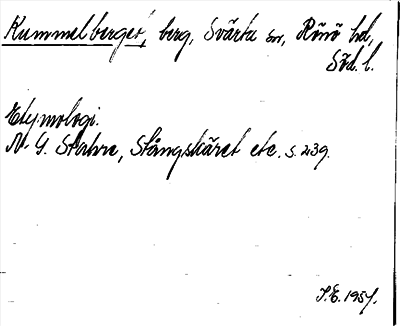 Kummelberget, berg, Svärta sn, Rönö hd,
Söd. l.
Etymologi.
N. G. Stahre, Stångskäret etc. s. 239.
S.E. 1957.